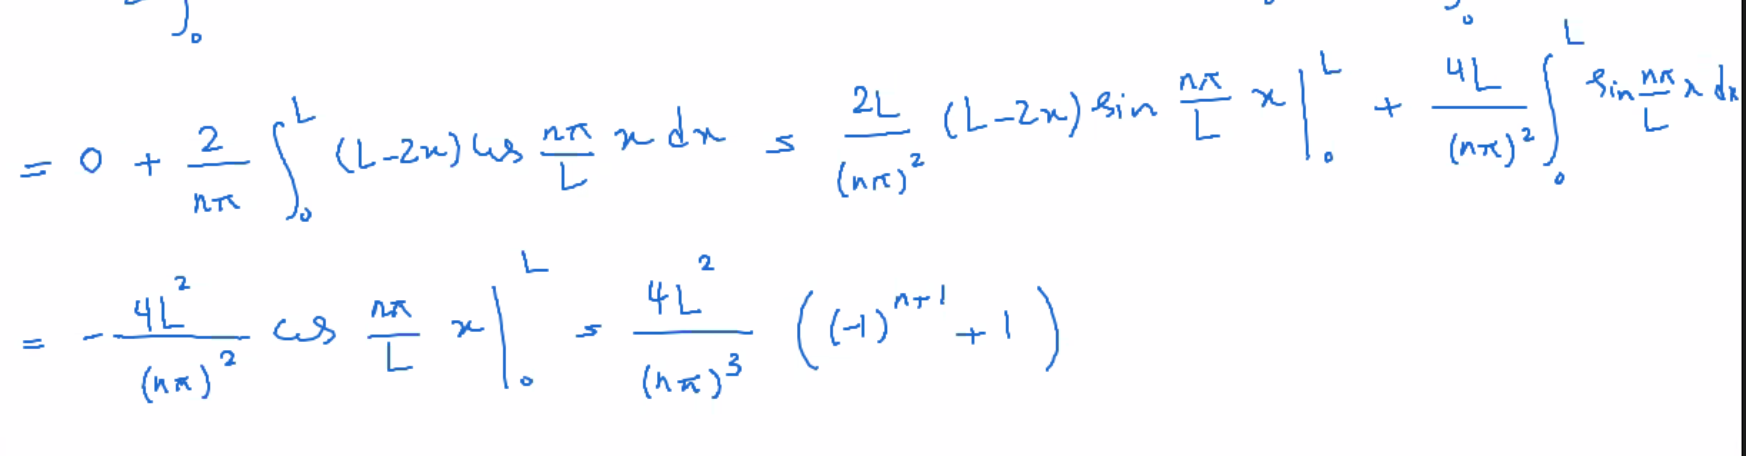 ∫_0 ∫_0
= 0 + \frac{2}{nπ} ∫_0^L (L-2x) cos \frac{nπ}{L} x dx = \frac{2L}{(nπ)^2} (L-2x) sin \frac{nπ}{L} x |_0^L + \frac{4L}{(nπ)^2} ∫_0^L sin \frac{nπ}{L} x dx
= - \frac{4L^2}{(nπ)^2} cos \frac{nπ}{L} x |_0^L = \frac{4L^2}{(nπ)^3} ((-1)^{n+1} + 1)